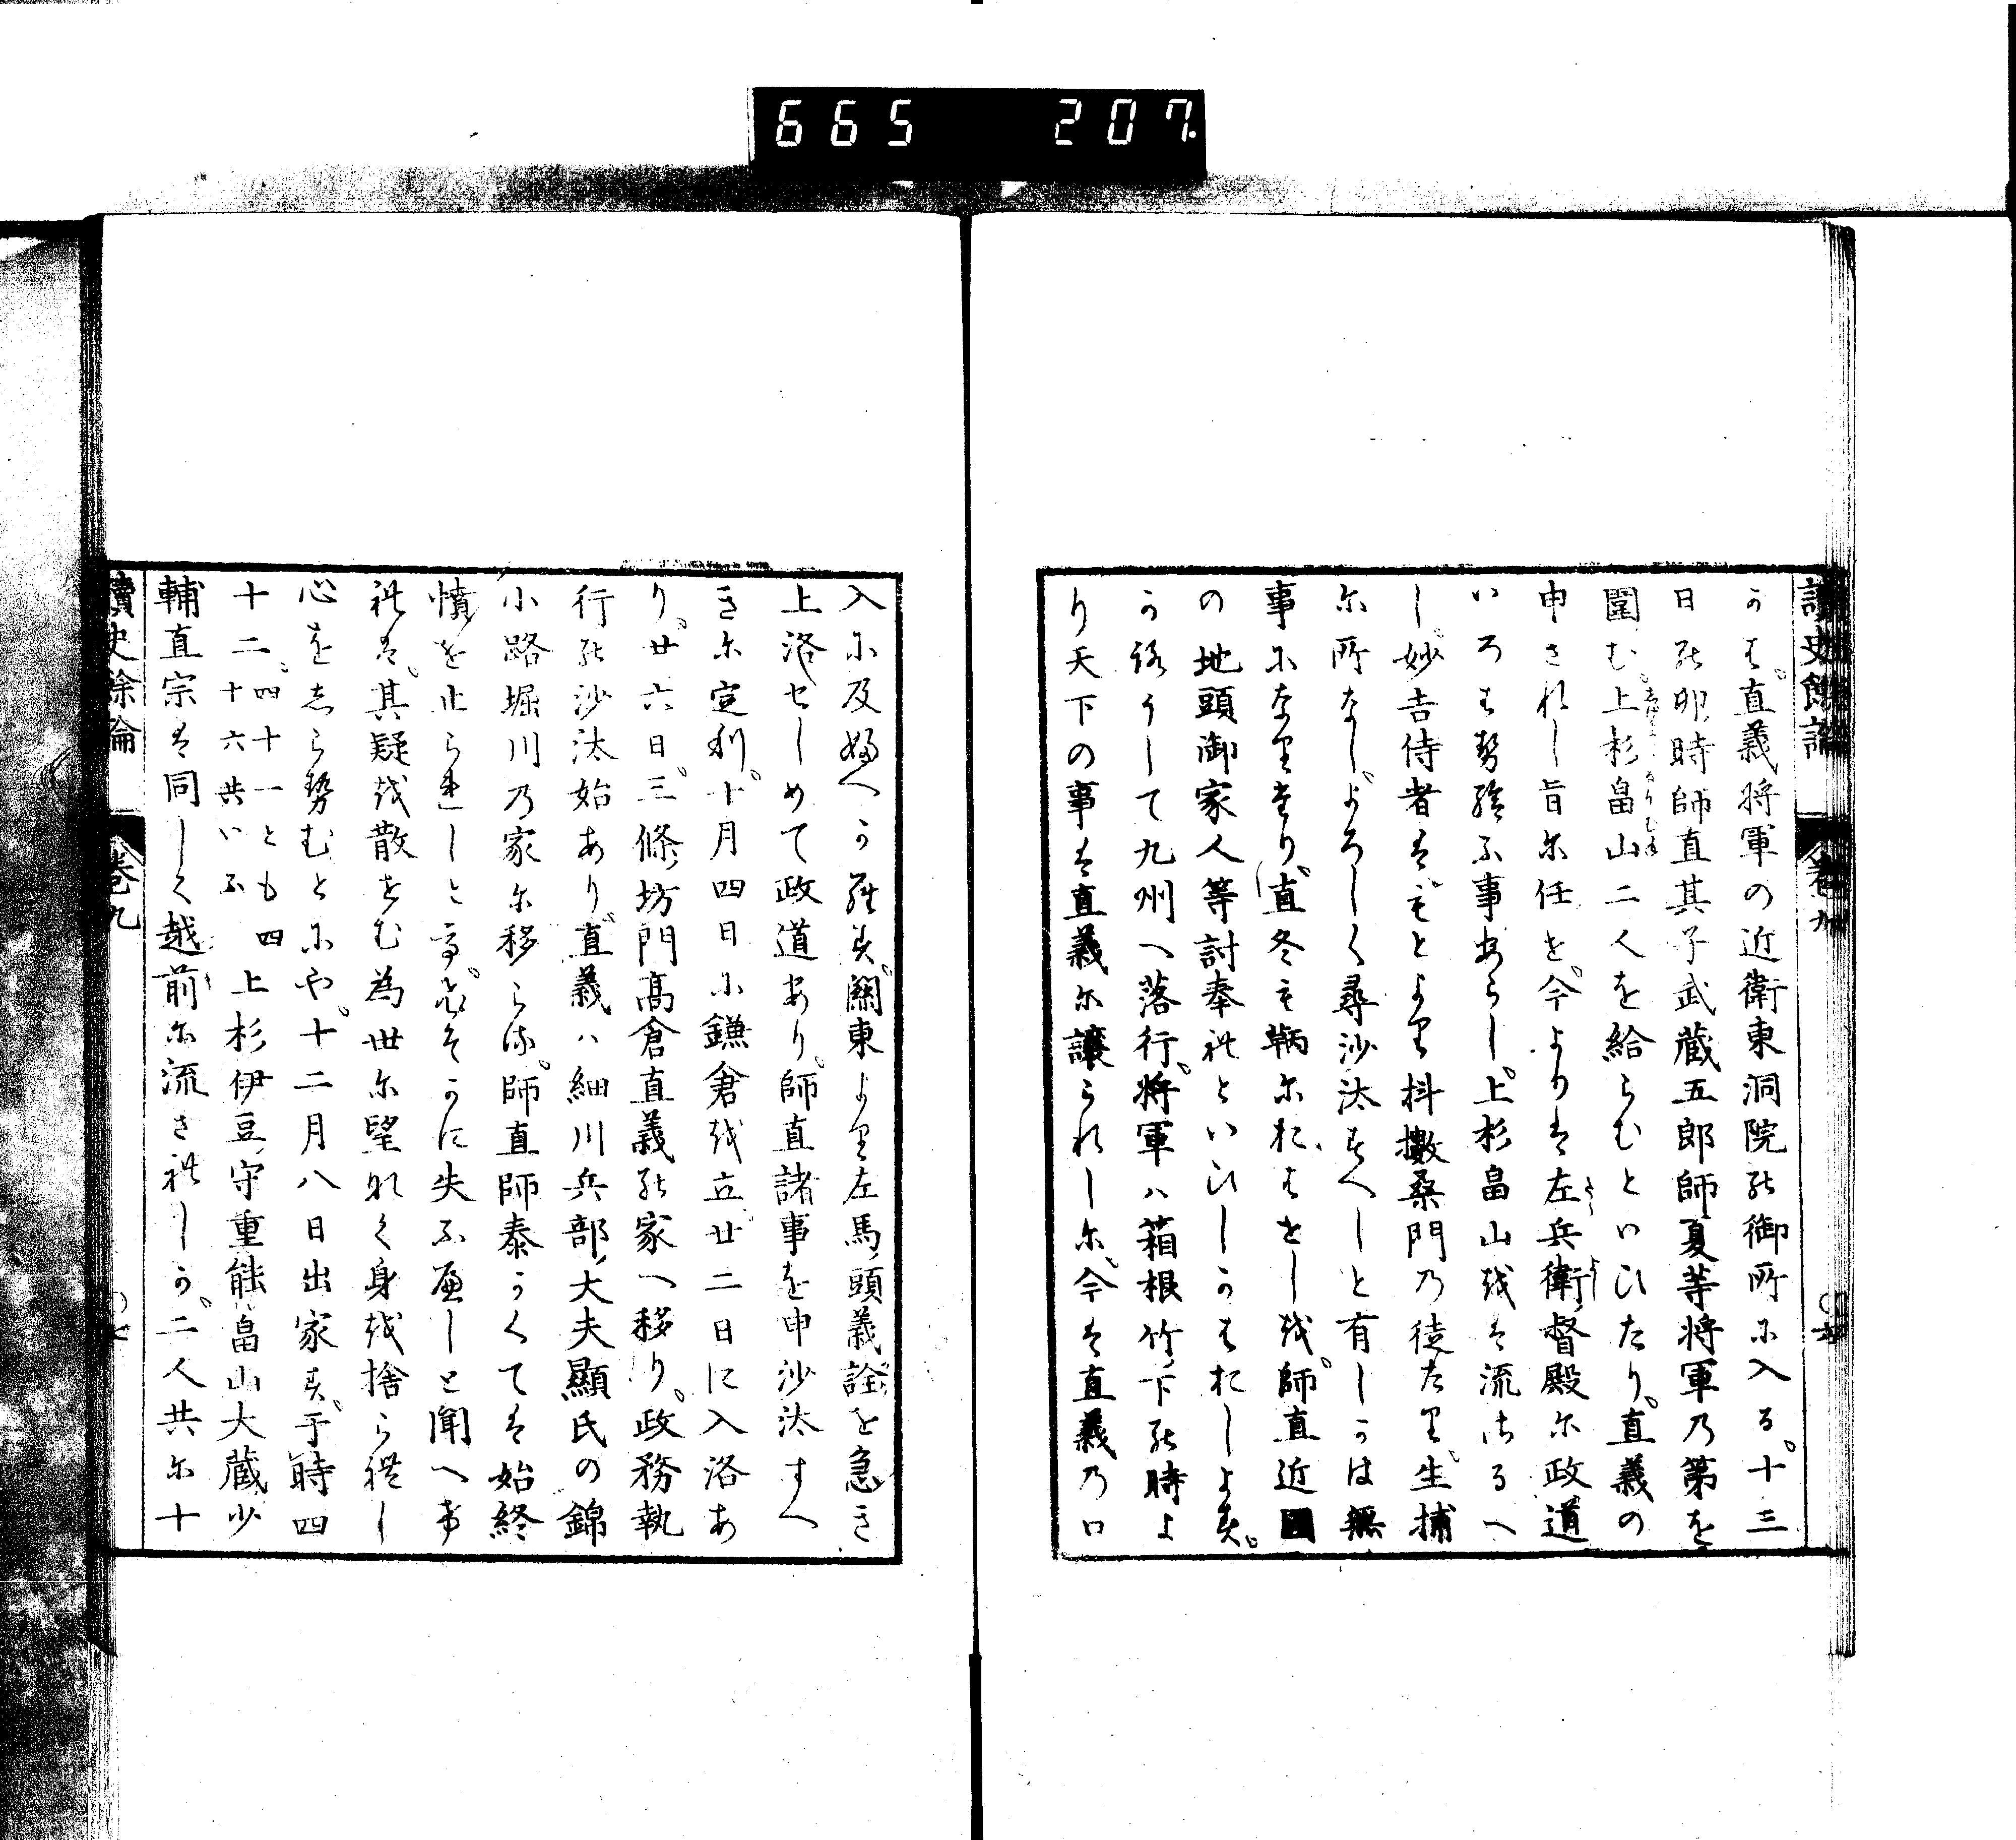 665 207
讀史餘論 卷九
かは。直義将軍の近衛東洞院の御所に入る。十三
日の卯時師直其子武蔵五郎師夏等将軍の第を
圍む。上杉畠山二人を給らむといひたり。直義の
申されし旨に任せ。今よりは左兵衛督殿に政道
いろはせ給ふ事あらし。上杉畠山をは流さるへ
し。妙吉侍者はもとより抖擻桑門の徒たり。生捕
に所なし。よろしく尋沙汰すへしと有しかは無
事になりたり。直冬も鞆におはせしを。師直近国
の地頭御家人等討奉れといひしかはおしよす。
から
うして九州へ落行。将軍ハ箱根竹下の時よ
り天下の事は直義に譲られしに。今は直義の口
入に及ふへからす。関東より左馬頭義詮を急き
上洛セしめて政道あり。師直諸事を申沙汰すへ
きに定利。十月四日に鎌倉を立廿二日に入洛あ
り。廿六日。三條坊門髙倉直義の家へ移り。政務執
行の沙汰始あり。直義ハ細川兵部大夫顕氏の錦
小路堀川の家に移らる。師直師泰かくては始終
憤を止られしとて。ひそかに失ふへしと聞へけ
れは。其疑を散せむ為世に望なく身を捨られし
心をしらせむとにや。十二月八日出家す。于時四
十二。四十一とも四十六共いふ 上杉伊豆守重能畠山大蔵少
輔直宗は同しく越前に流されしか。二人共に十
讀史餘論 卷九